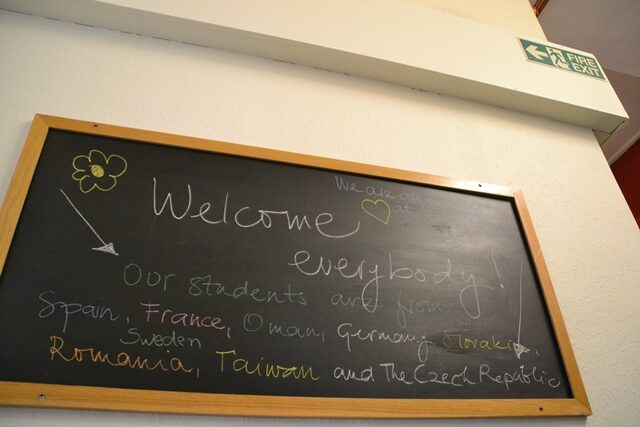 FIRE
EXIT
We are
at
Welcome
everybody!
Our students are from
Spain, France, Oman, Germany, Slovakia,
Sweden
Romania, Taiwan and The Czech Republic